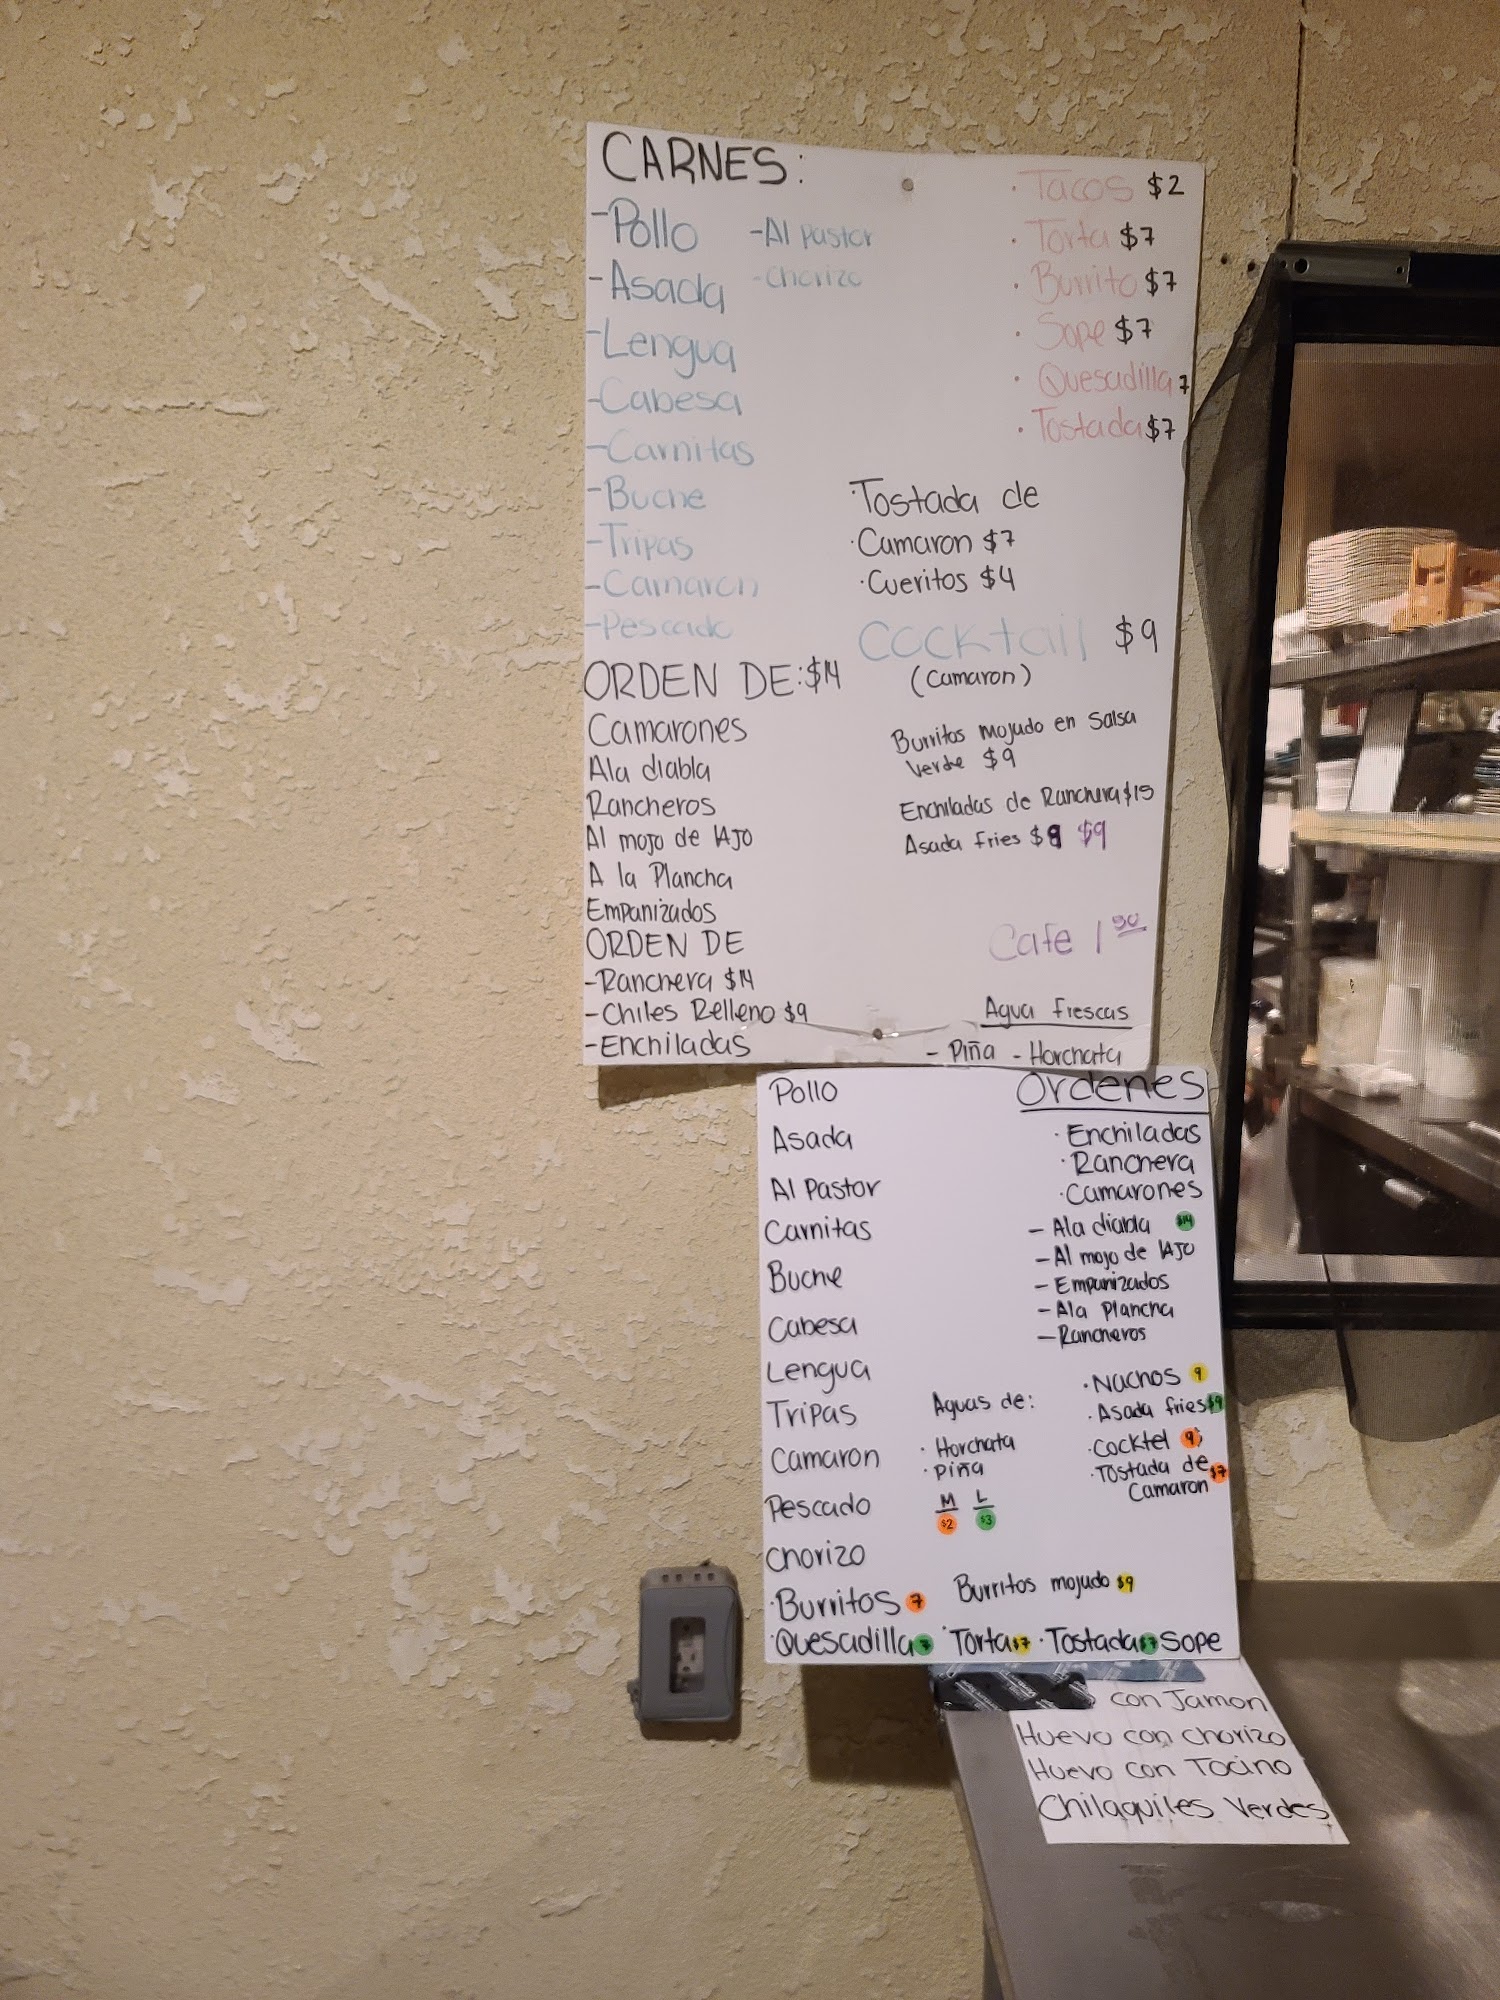 CARNES:
-Pollo
-Asada
-Lengua
-Cabesa
-Carnitas
-Buche
-Tripas
-Camaron
-Pescado
-Al Pastor
-Chorizo
· Tacos $2
· Torta $7
· Burrito $7
· Sope $7
· Quesadilla 7
· Tostada $7
·Tostada de
·Camaron $7
·Cueritos $4
Cocktail $9
(Camaron)
ORDEN DE: $14
Camarones
Ala diabla
Rancheros
Al mojo de IAJO
A la Plancha
Empanizados
ORDEN DE
-Ranchera $14
-Chiles Relleno $9
-Enchiladas
Burritos mojado en Salsa
Verde $9
Enchiladas de Ranchera $15
Asada Fries $9 $9
Cafe 1 50
Agua frescas
- Piña - Horchata
Pollo
Asada
Al Pastor
Carnitas
Buche
Cabesa
Lengua
Tripas
Camaron
Pescado
Chorizo
Ordenes
· Enchiladas
· Ranchera
· Camarones
- Ala diabla $14
- Al mojo de IAJO
- Empanizados
- Ala Plancha
- Rancheros
· Nachos 9
· Asada fries $9
· Cocktel 9
· Tostada de $7
Camaron
Aguas de:
· Horchata
· Piña
M L
$2 $3
· Burritos 7
Burritos mojado $9
· Quesadilla 7 · Torta $7 · Tostada $7 Sope
con Jamon
Huevo con chorizo
Huevo con Tocino
Chilaquiles Verdes